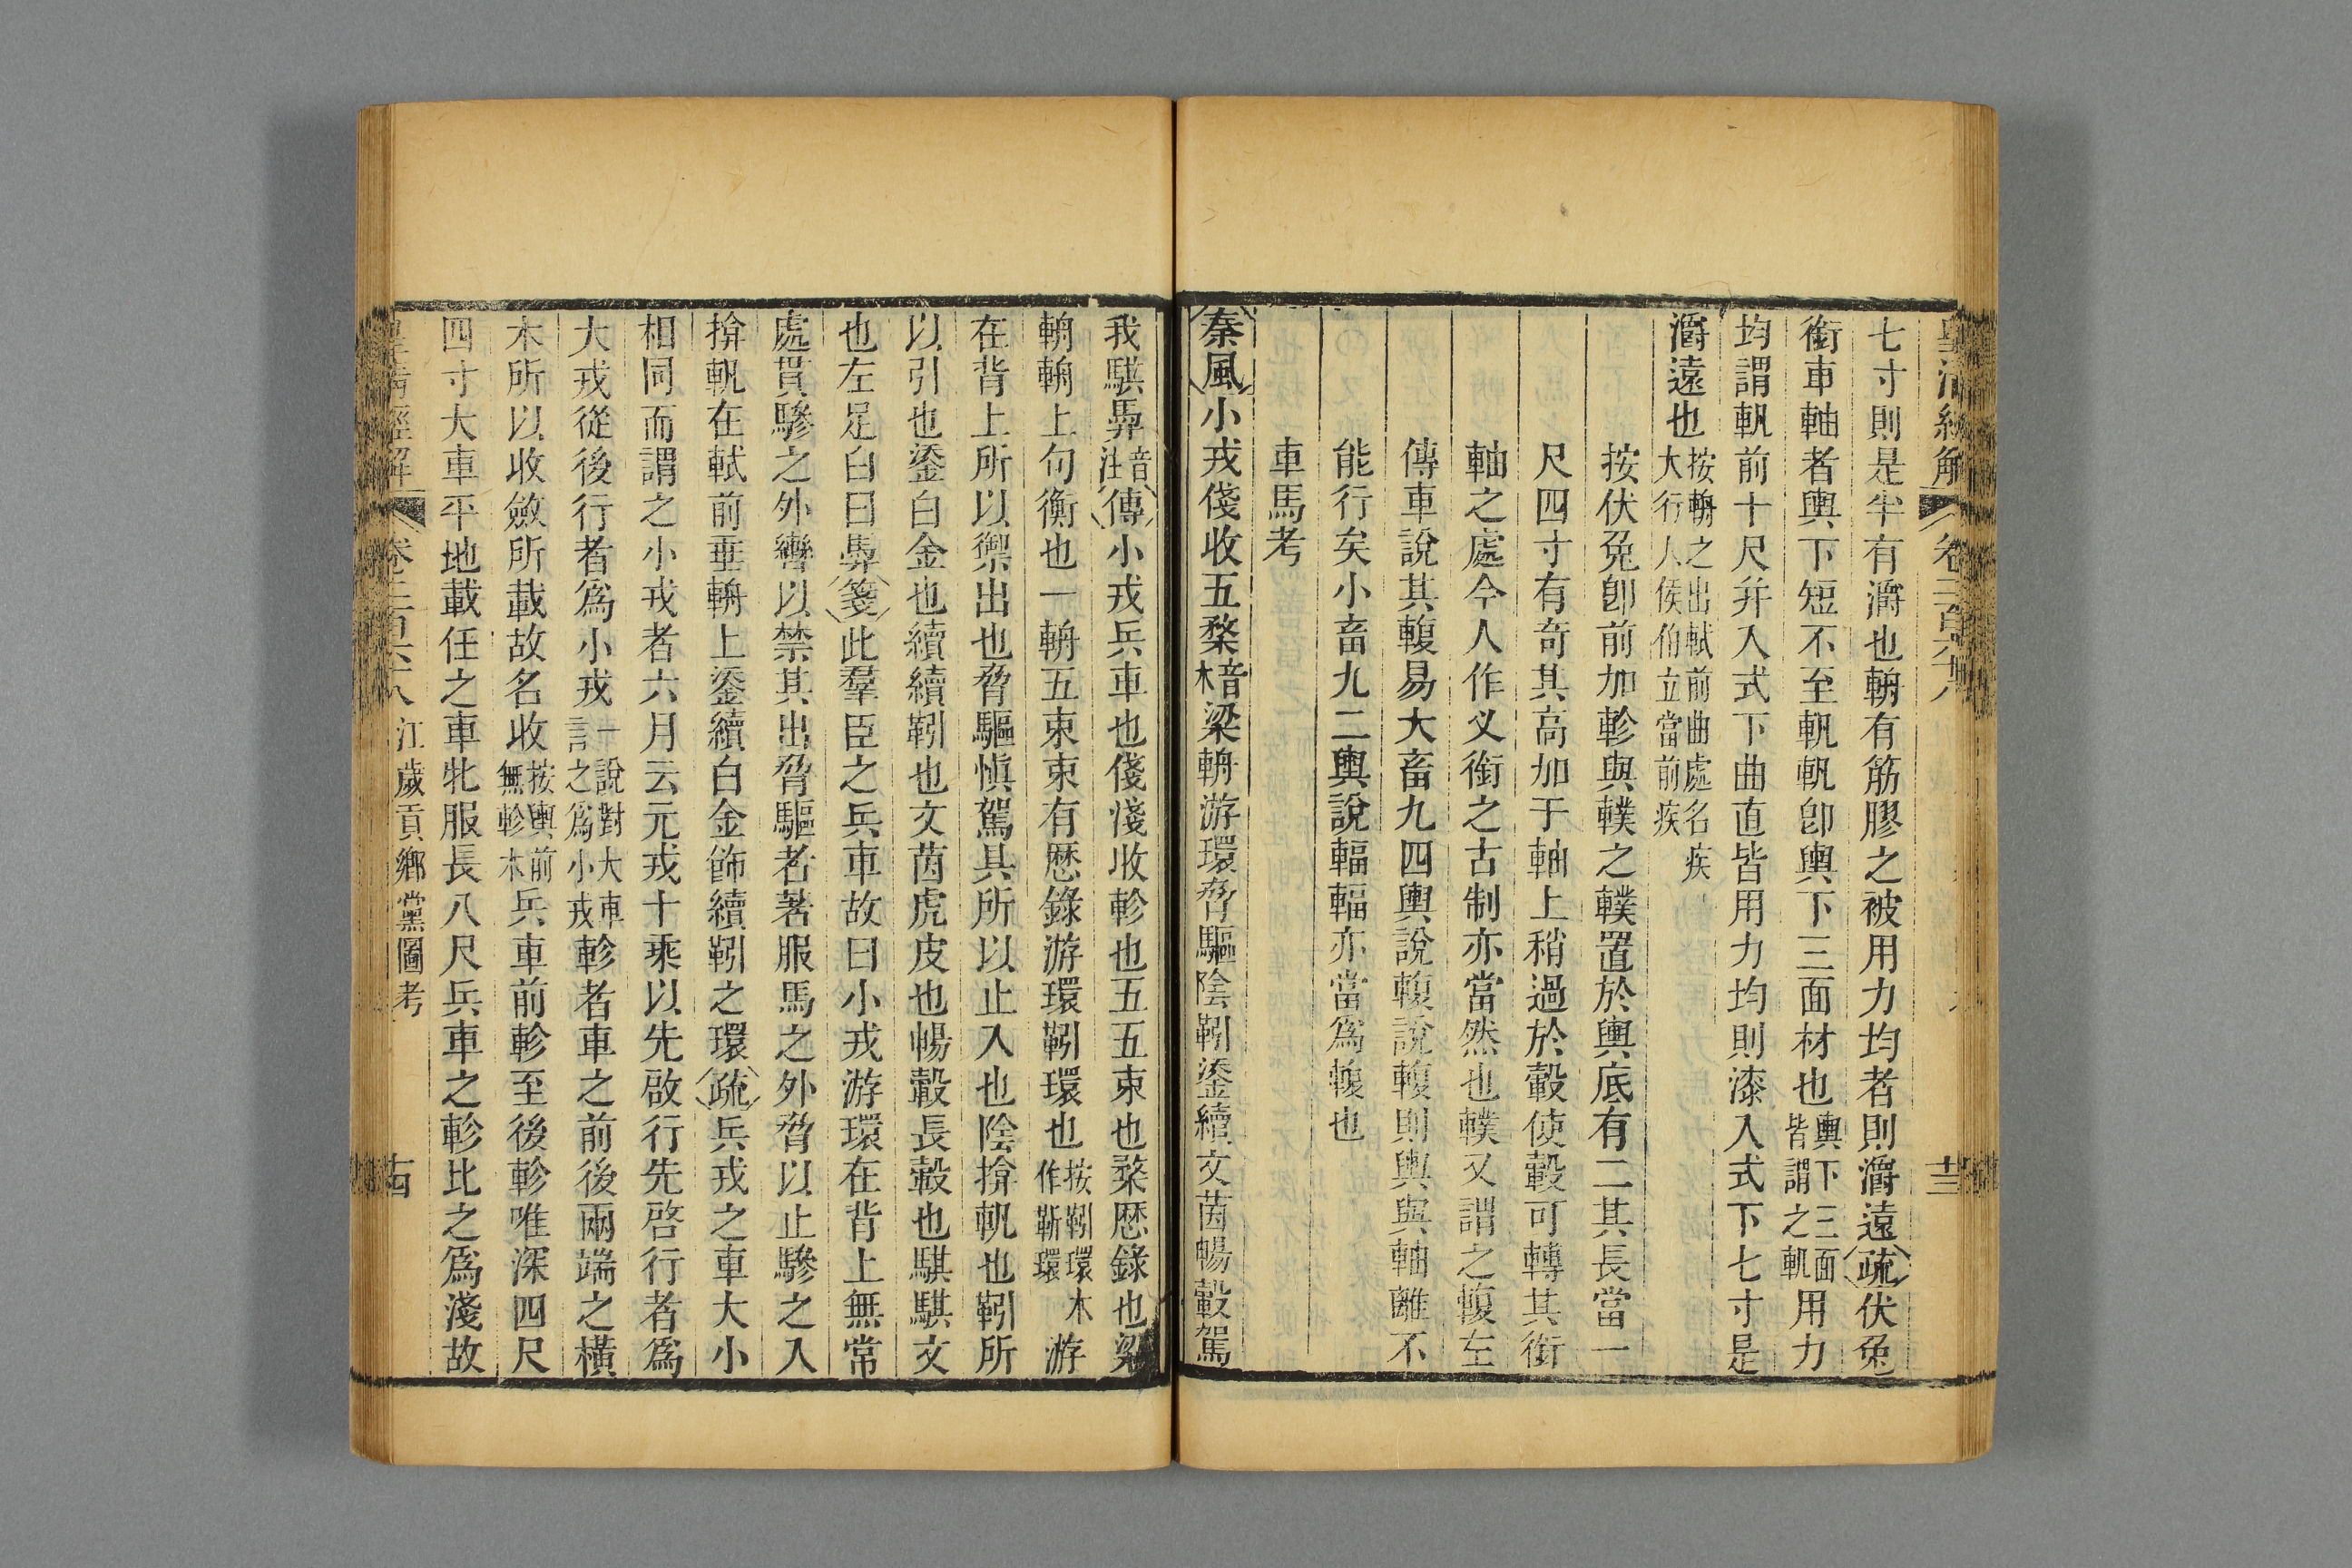 皇清經解 卷二百六十八 十三
七寸則是半有灂也輈有筋膠之被用力均者則灂遠疏伏兔
銜車軸者輿下短不至軓軓卽輿下三面材也輿下三面皆謂之軓用力
均謂軓前十尺并入式下曲直皆用力均則漆入式下七寸是
灂遠也按輈之出軾前曲處名疾大行人侯伯立當前疾
按伏兔卽前加軫與轐之轐置於輿底有二其長當一
尺四寸有奇其高加于軸上稍過於轂使轂可轉其銜
軸之處今人作乂銜之古制亦當然也轐又謂之輹左
傳車說其輹易大畜九四輿說輹說輹則輿與軸離不
能行矣小畜九二輿說輻輻亦當爲輹也
車馬考
秦風小戎俴收五楘音木梁輈游環脅驅陰靷鋈續文茵暢轂駕
我騏馵音注傳小戎兵車也俴淺收軫也五五束也楘歷錄也梁
輈輈上句衡也一輈五束束有歷錄游環靷環也按靷環本作靳環游
在背上所以禦出也脅驅愼駕具所以止入也陰揜軓也靷所
以引也鋈白金也續續靷也文茵虎皮也暢轂長轂也騏騏文
也左足白曰馵箋此羣臣之兵車故曰小戎游環在背上無常
處貫驂之外轡以禁其出脅驅者著服馬之外脅以止驂之入
揜軓在軾前垂輈上鋈續白金飾續靷之環疏兵戎之車大小
相同而謂之小戎者六月云元戎十乘以先啟行先啓行者爲
大戎從後行者爲小戎一說對大車言之爲小戎軫者車之前後兩端之橫
木所以收斂所載故名收按輿前無軫木兵車前軫至後軫唯深四尺
四寸大車平地載任之車牝服長八尺兵車之軫比之爲淺故
皇清經解 卷二百六十八 江歲貢鄉黨圖考 十四